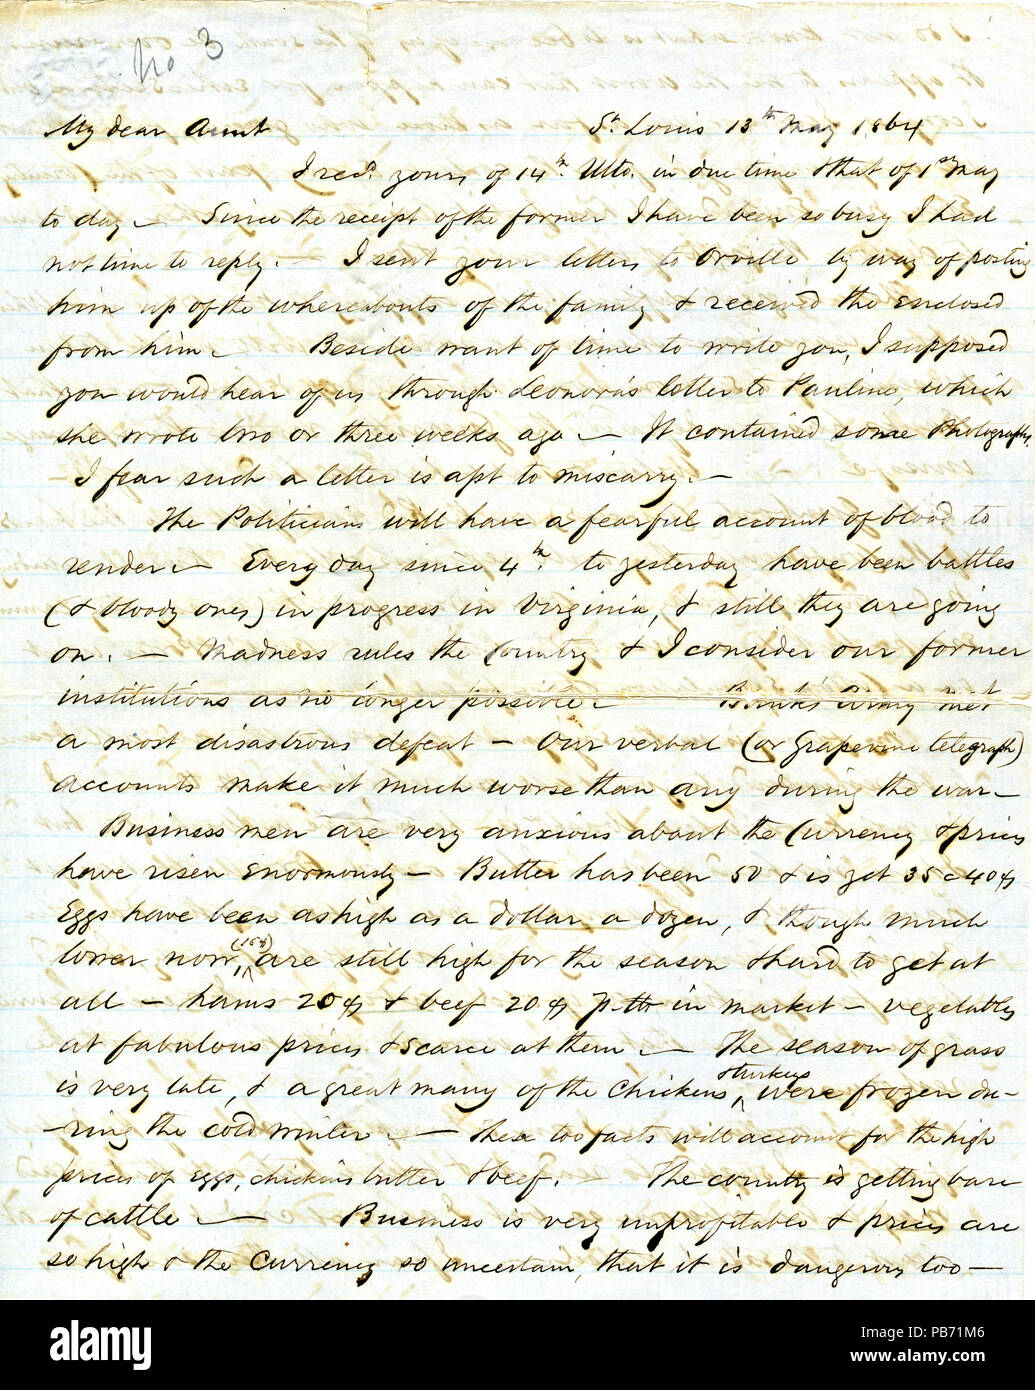 No 3
My dear Aunt St Louis 13th May 1864
I recd. yours of 14th. Ulto. in due time & that of 1st May
to day — Since the receipt of the former I have been so busy I had
not time to reply. — I sent your letters to Orville by way of posting
him up of the whereabouts of the family & received the enclosed
from him — Beside want of time to write you, I supposed
you would hear of us through Leonora's letter to Pauline, which
she wrote two or three weeks ago — It contained some Photographs,
I fear such a letter is apt to miscarry. —
The Politicians will have a fearful account of blood to
render — Every day since 4th. to yesterday have been battles
(& bloody ones) in progress in Virginia, & still they are going
on. — Madness rules the Country & I consider our former
institutions as no longer possible — Banks' Army met
a most disastrous defeat — Our verbal (or Grapevine telegraph)
accounts make it much worse than any during the war —
Business men are very anxious about the Currency & prices
have risen enormously — Butter has been 50 & is yet 35 a 40¢
Eggs have been as high as a dollar a dozen, & though much
lower now, (15¢) are still high for the season & hard to get at
all — hams 20¢ & beef 20¢ p. lb in market — vegetables
at fabulous prices & scarce at them — The season of grass
is very late, & a great many of the chickens & turkeys were frozen du-
-ring the cold winter — These two facts will account for the high
prices of eggs, chickens butter & beef. — The country is getting bare
of cattle — Business is very unprofitable & prices are
so high & the Currency so uncertain, that it is dangerous too —
alamy
Image ID: PB71M6
www.alamy.com